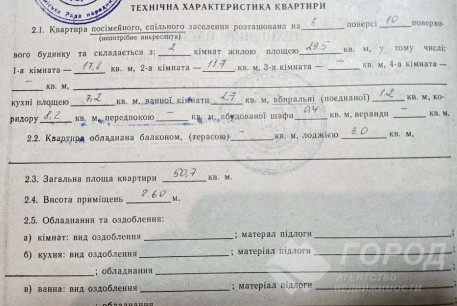 ТЕХНІЧНА ХАРАКТЕРИСТИКА КВАРТИРИ
2.1. Квартира посімейного, спільного заселення розташована на 3 поверсі 10 поверхо-
(непотрібне викреслити)
вого будинку та складається з: 2 кімнат жилою площею 29.5 кв. м, у тому числі:
1-а кімната — 17,8 кв. м, 2-а кімната — 11.7 кв. м, 3-я кімната — – кв. м, 4-а кімната —
– кв. м,
кухні площею 7.2 кв. м, ванної кімнати 2.7 кв. м, вбиральні (поєднаної) 1.2 кв. м, ко-
ридору 8,2 кв. м, передпокою – кв. м, вбудованої шафи 0,4 кв. м, веранди – кв. м.
2.2. Квартира обладнана балконом, (терасою) – кв. м, лоджією 3.0 кв. м,
2.3. Загальна площа квартири 50,7 кв. м.
2.4. Висота приміщень 2.60 м.
2.5. Обладнання та оздоблення:
а) кімнат: вид оздоблення ; матерал підлоги
б) кухня: вид оздоблення ; матеріал підлоги
; обладнання
в) ванна: вид оздоблення ; матеріал підлоги
; обладнання
ГОРОД
АГЕНТСТВО
НЕДВИЖИМОСТИ